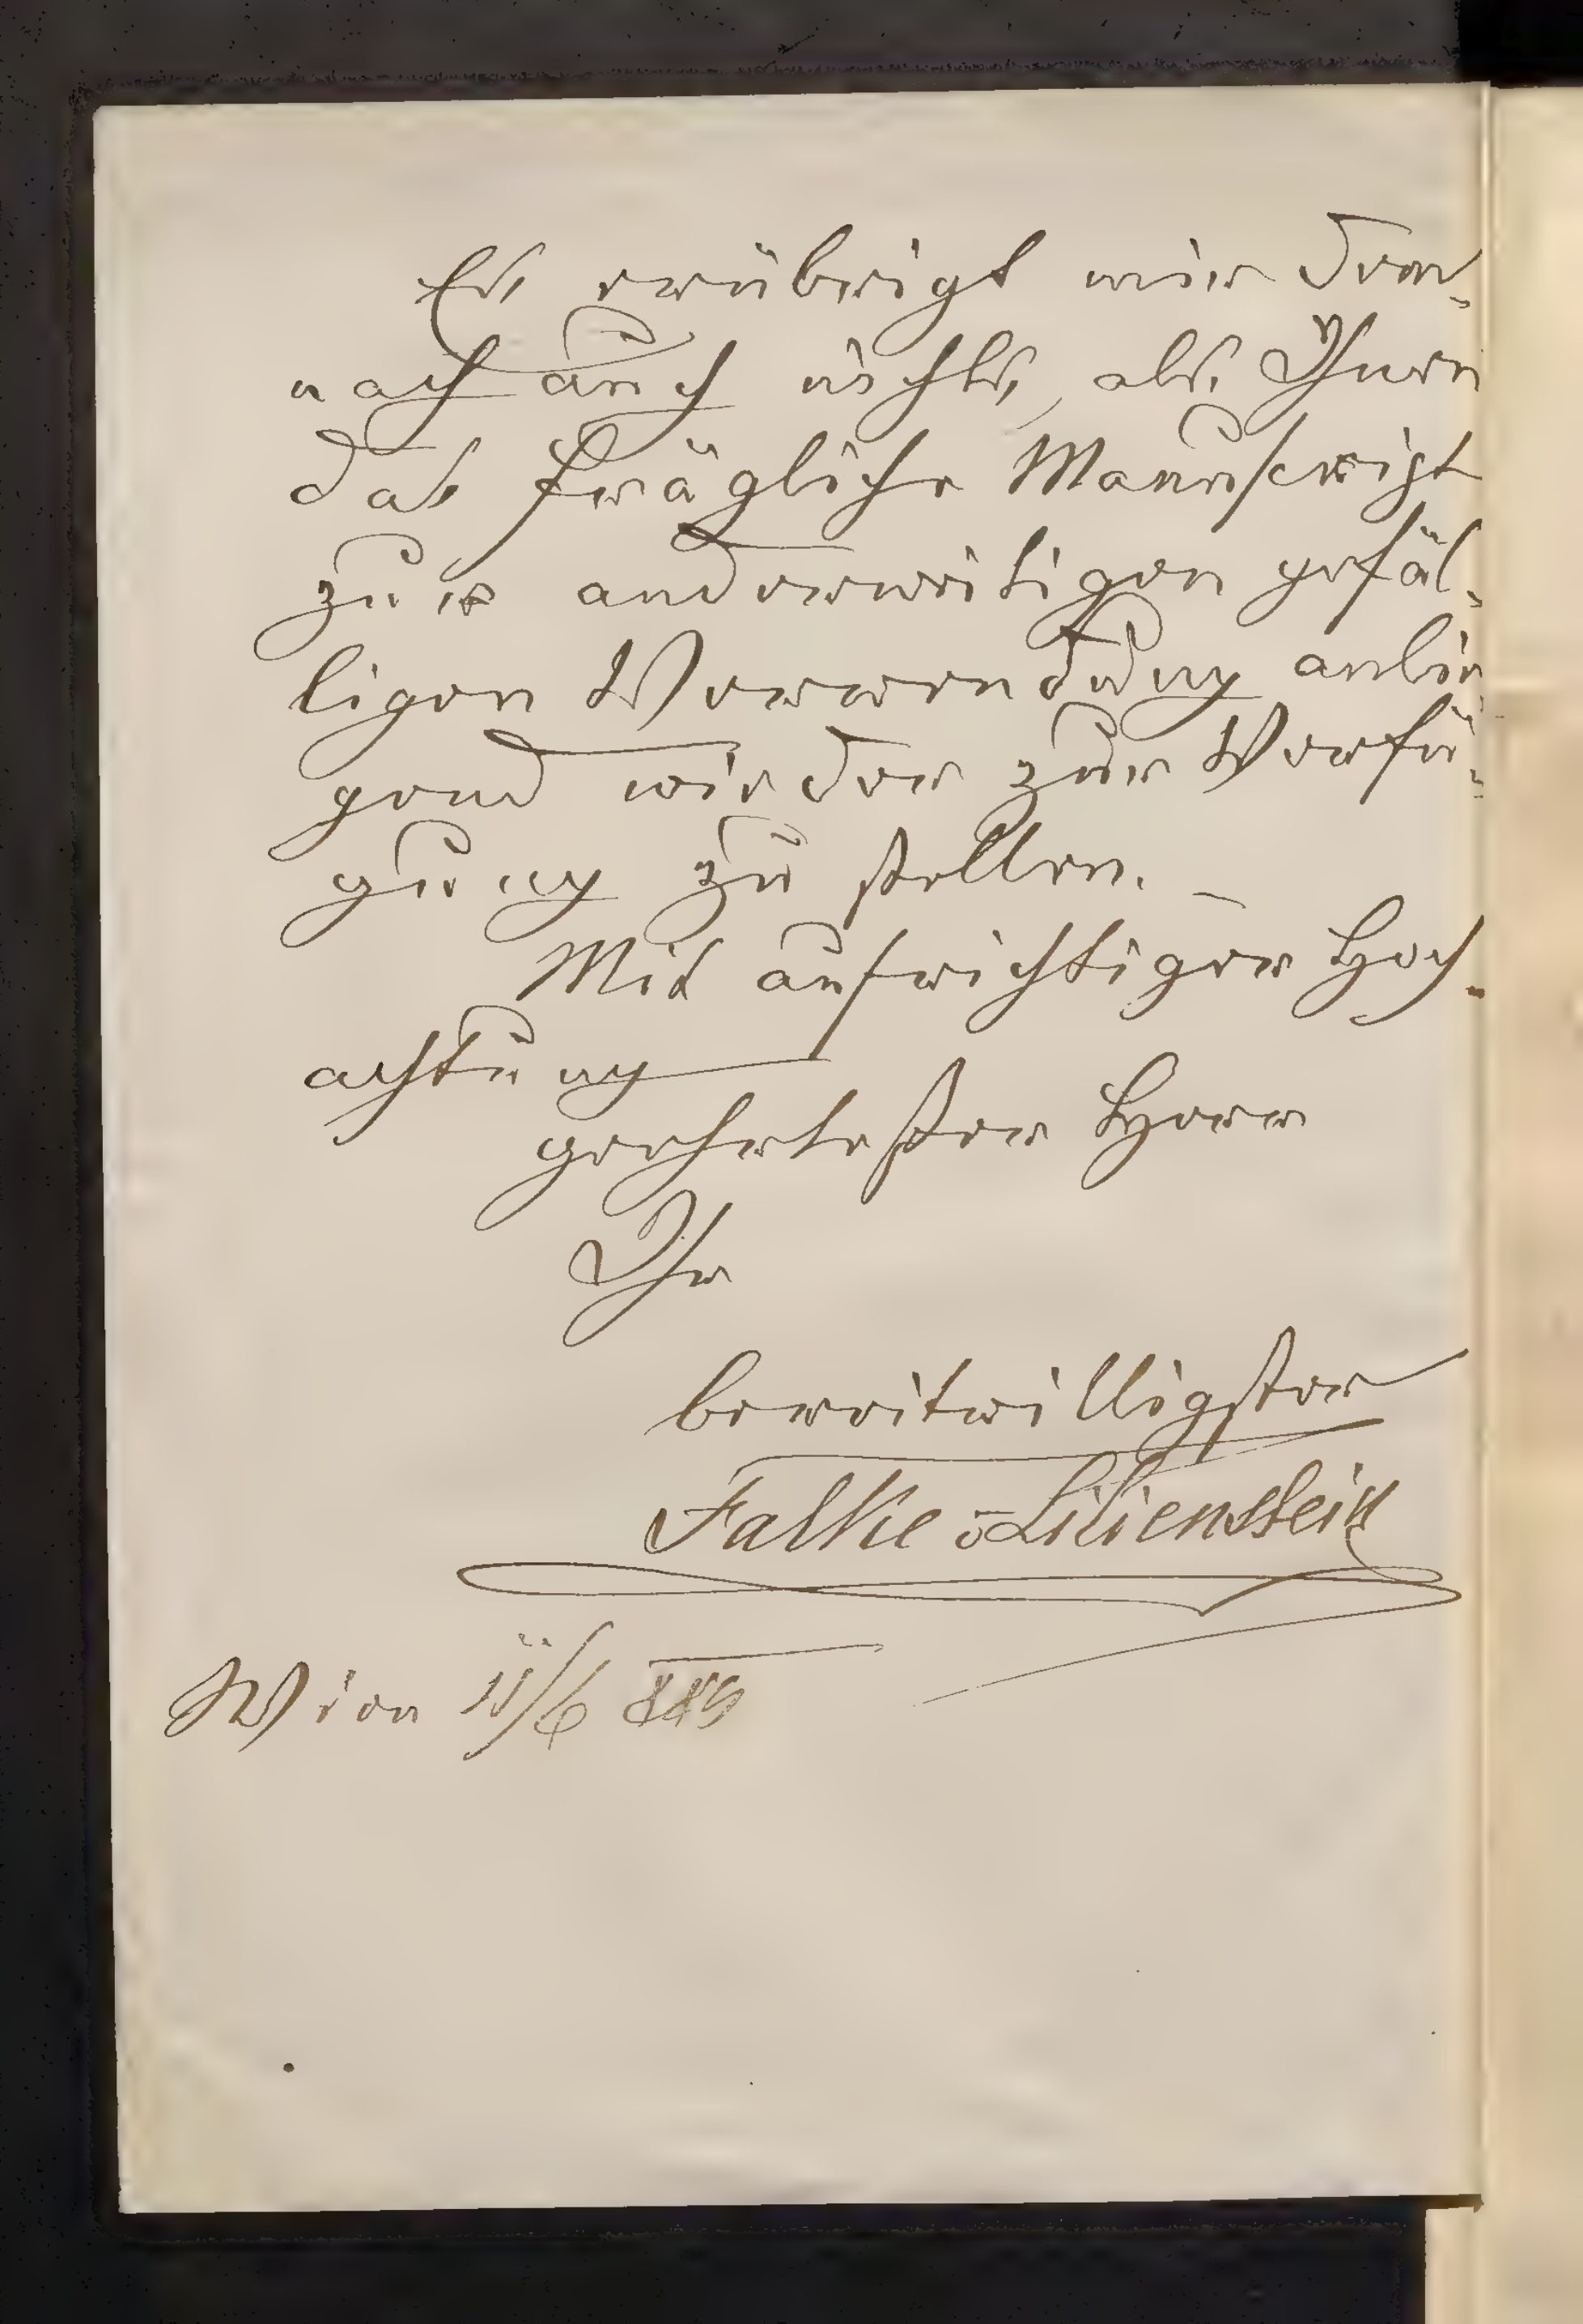 Es erübrigt mir dem-
nach auch nichts, als Ihnen
das frägliche Manuscript
zur anderweitigen gefäl-
ligen Verwendung anlie-
gend wieder zur Verfü-
gung zu stellen. –
Mit aufrichtiger Hoch-
achtung
geehrtester Herr
Ihr
bereitwilligster
Falke v Lilienstein
Wien 11/6 885